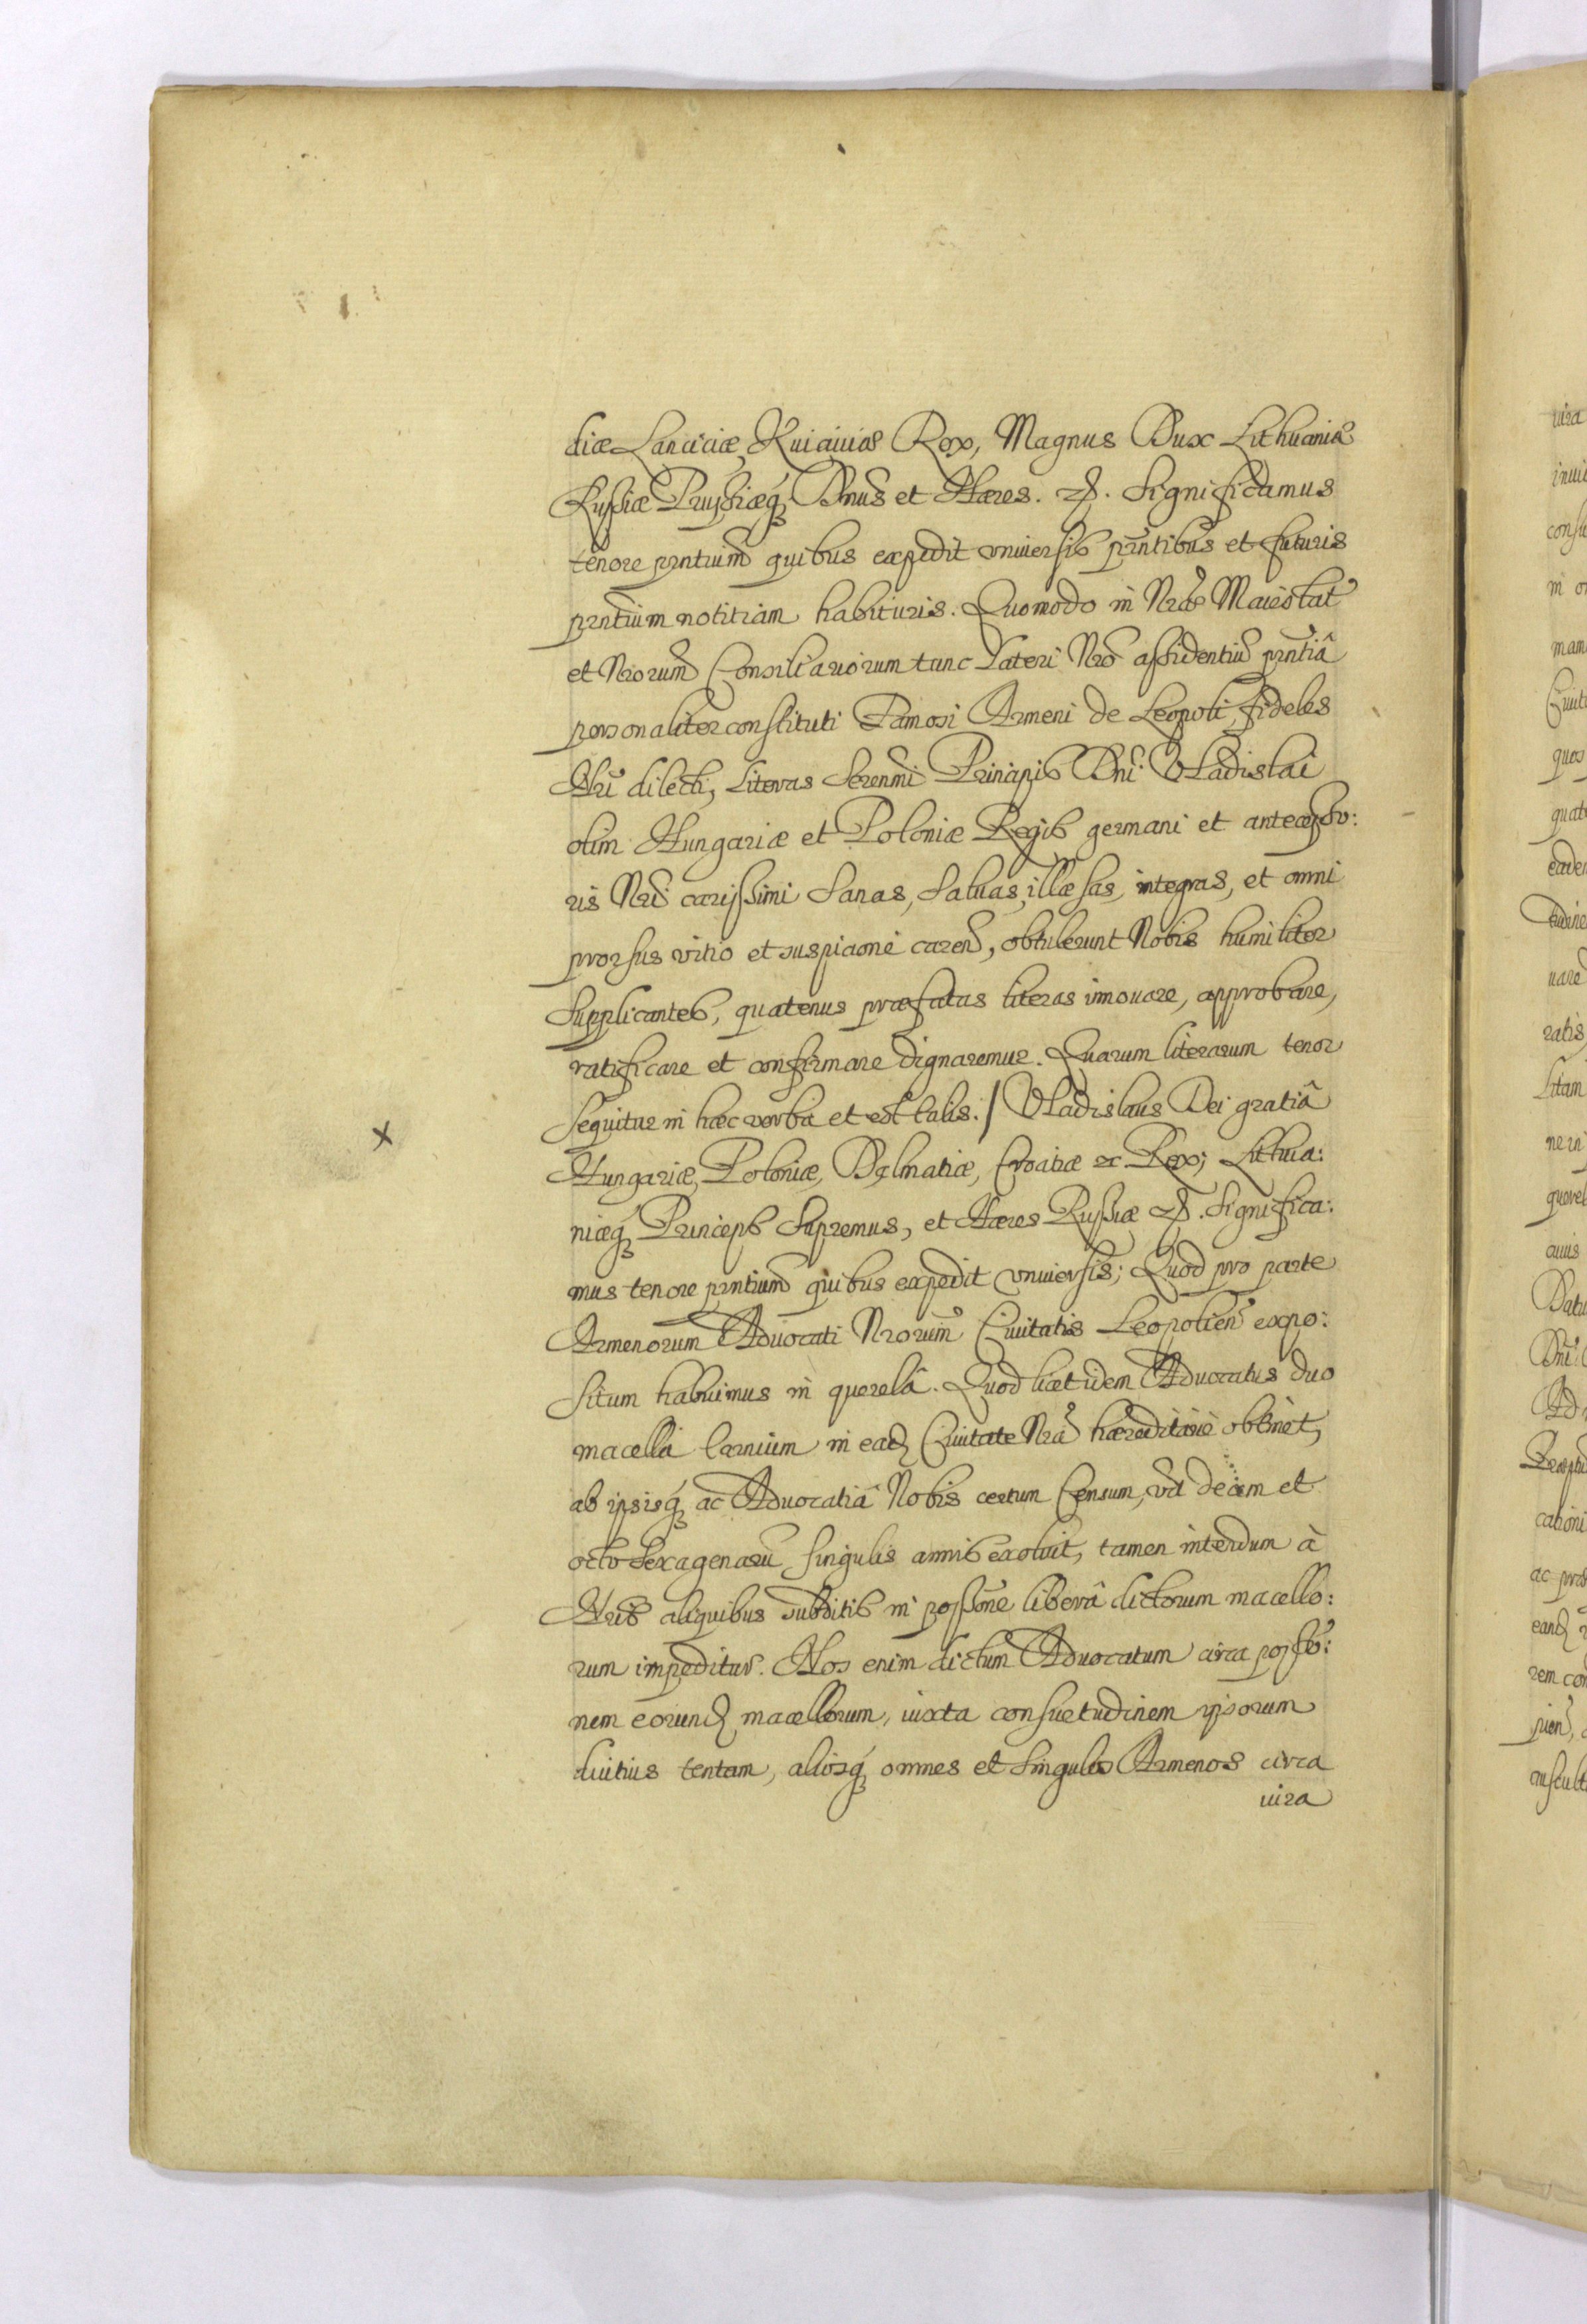 diæ Lanciciæ, Kuiaviæ Rex, Magnus Dux Lithuaniæ
Russiæ Prussiæq́ꝫ Dnus et Hæres. &c. Significamus
tenore pntium̃ quibus expedit vniuersis pntibus et futuris
pntium notitiam habituris. Quomodo in Nræ Maiestat̃
et Nrorum Consiliariorum tunc Lateri Nro assidentiũ pntiâ
personaliter constituti Famosi Armeni de Leopoli, fideles
Nri dilecti, Literas Serenmi Principis Dni Vladislai
olim Hungariæ et Poloniæ Regis germani et antecesso:
ris Nri carissimi Sanas, Saluas, illæsas, integras, et omni
prorsus vitio et suspicione careñ, obtulerunt Nobis humiliter
Supplicantes, quatenus præfatas literas innouare, approbare,
ratificare et confirmare dignaremur. Quarum literarum tenor
Sequitur in hæc verba et est talis. / Vladislaus Dei gratiâ
Hungariæ, Poloniæ, Dalmatiæ, Croatiæ &c Rex; Lithua:
niæq́ꝫ Princeps Supremus, et Hæres Russiæ &c. Significa:
mus tenore pntium̃ quibus expedit vniuersis; Quod pro parte
Armenorum Aduocati Nrorum Ciuitatis Leopolieñ expo:
situm habuimus in querelâ. Quod licet idem Aduocatus duo
macella Carnium in eadꝫ Ciuitate Nrã hæreditariè obtinet,
ab ipsisq́ꝫ ac Aduocatiâ Nobis certum Censum, vꝫ decem et
octo Sexagenarũ singulis annis exoluit, tamen interdum à
Nris aliquibus subditis in possone liberâ dictorum macello:
rum impeditur. Nos enim dictum Aduocatum circa possessio:
nem eorundꝫ macellorum, iuxta consuetudinem ipsorum
diutius tentam, aliosq́ꝫ omnes et singulos Armenos circa
iura